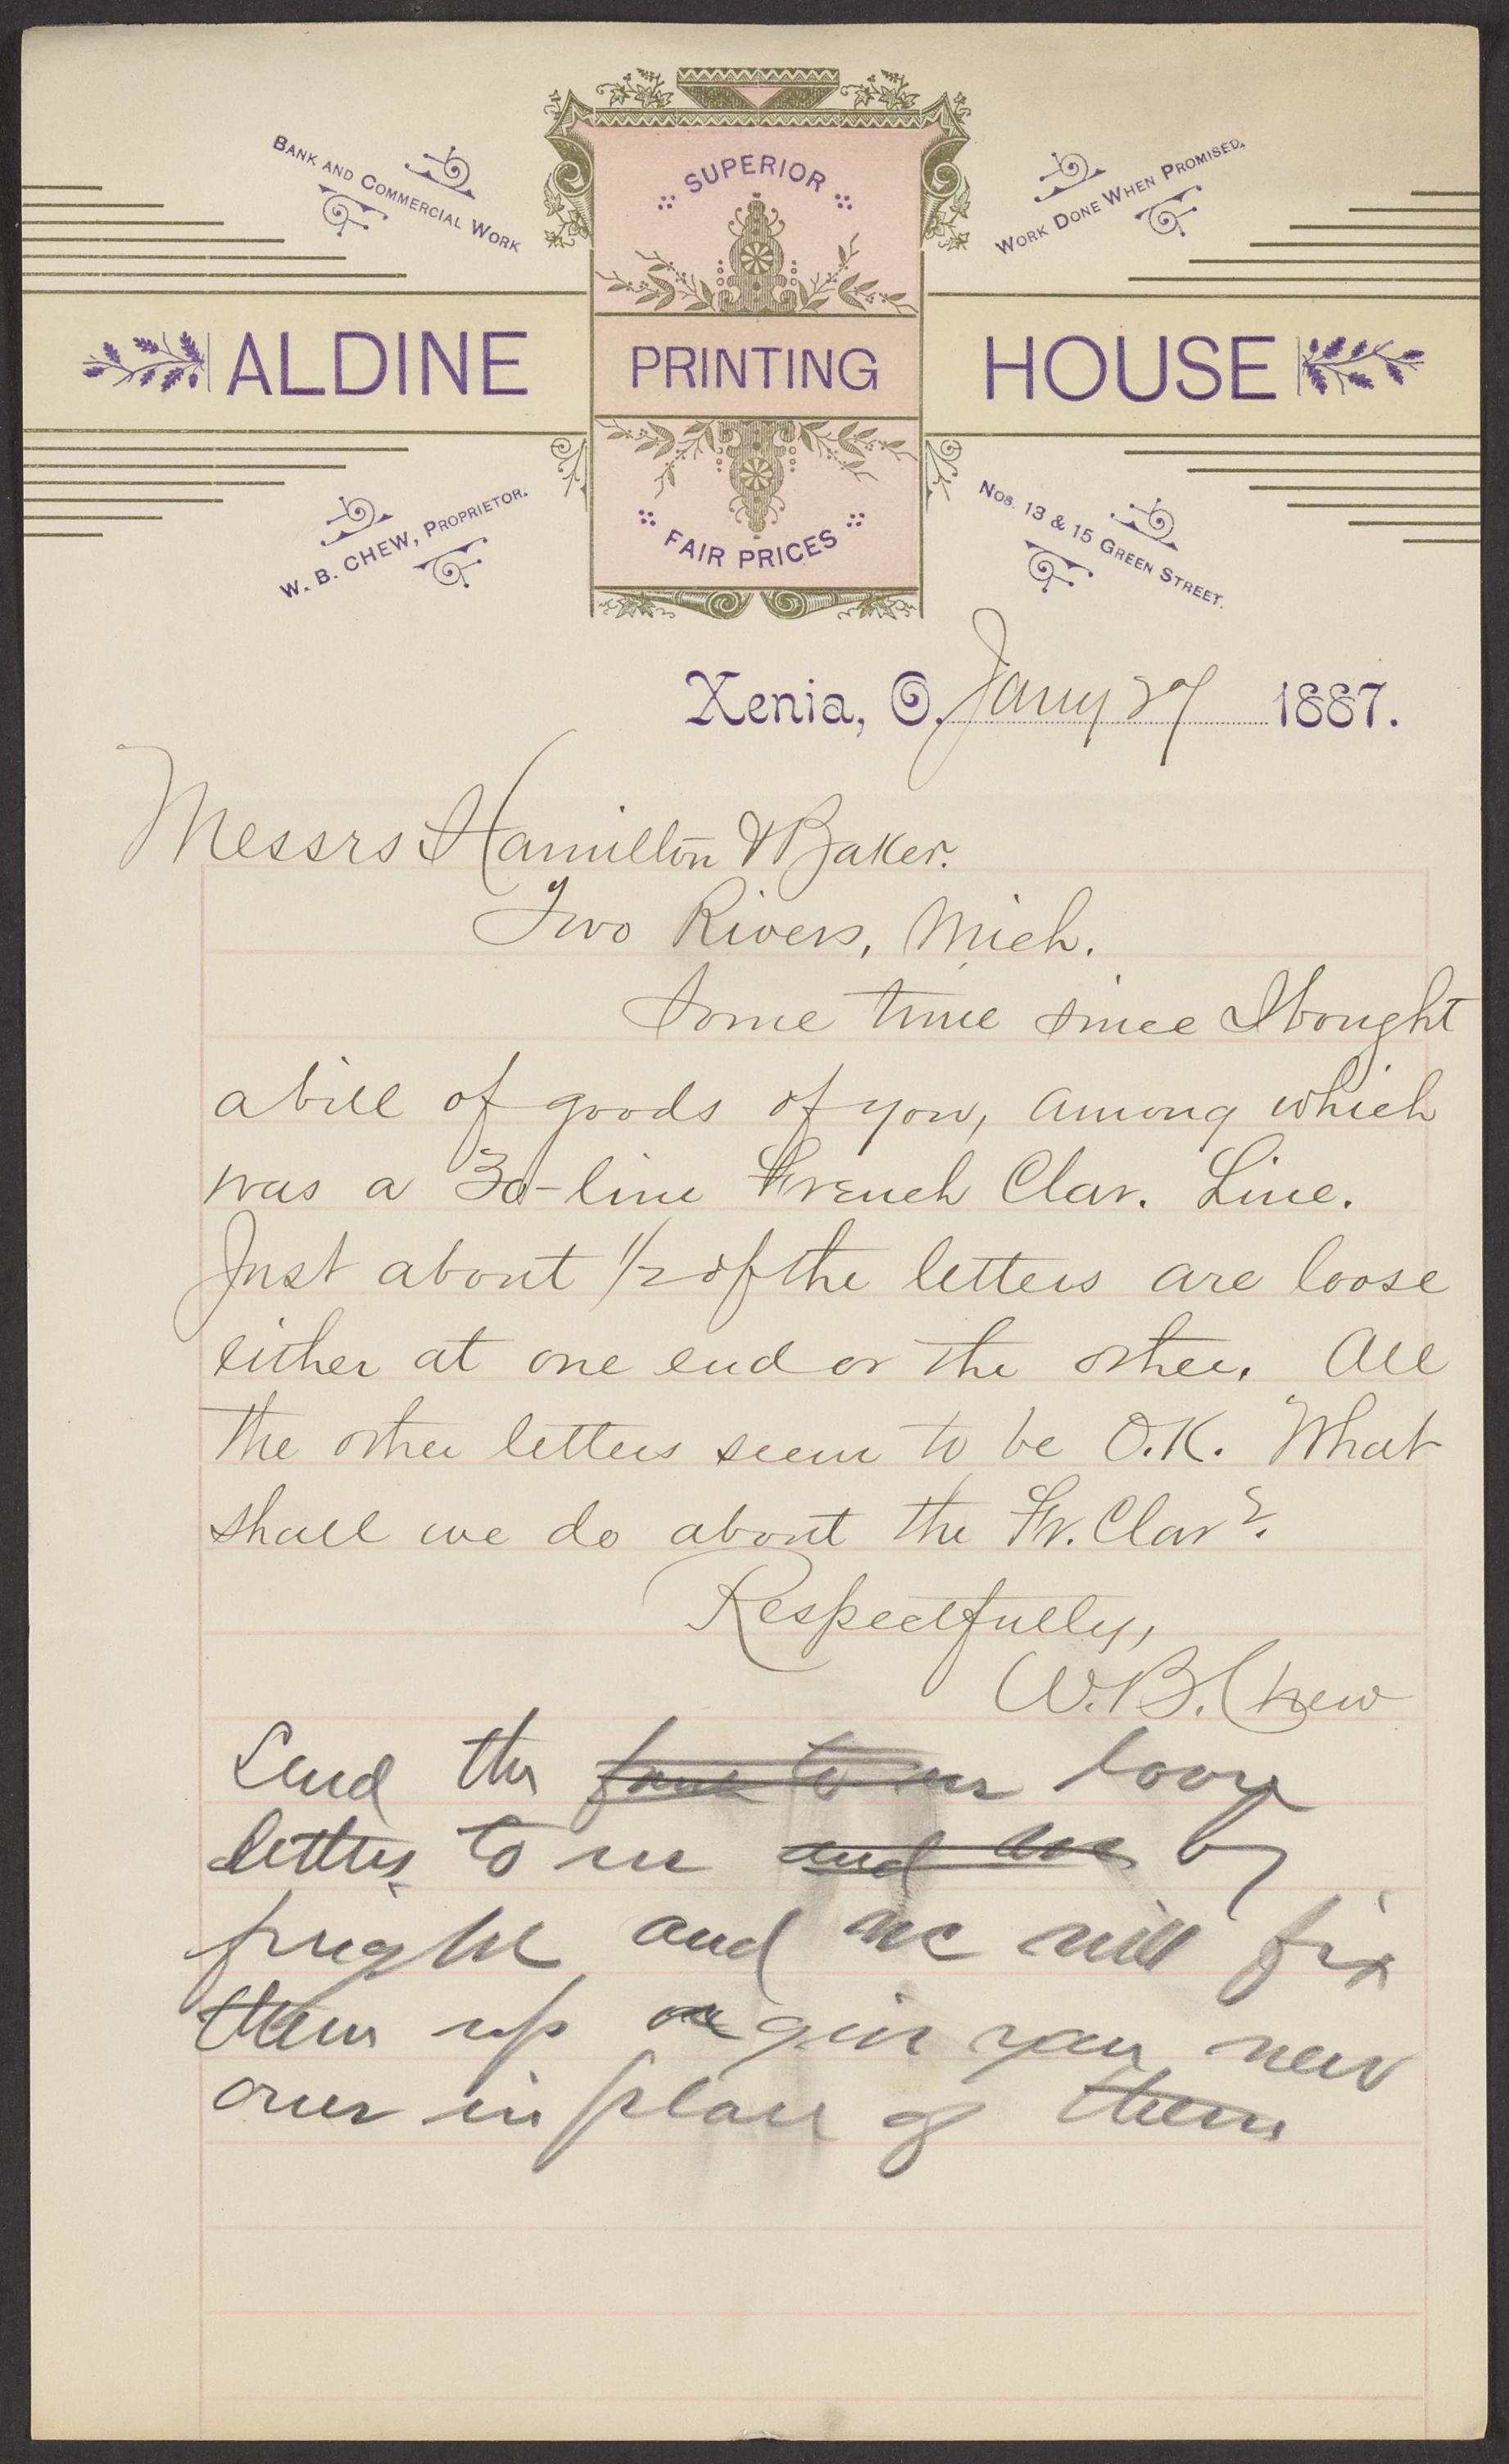 BANK AND COMMERCIAL WORK
SUPERIOR
WORK DONE WHEN PROMISED.
ALDINE PRINTING HOUSE
W. B. CHEW, PROPRIETOR.
FAIR PRICES
NOS. 13 & 15 GREEN STREET.
Xenia, O. Jany 27 1887.
Messrs Hamilton & Baker.
Two Rivers, Mich.
Some time since I bought
a bill of goods of you, among which
was a 30-line French Clar. Line.
Just about 1/2 of the letters are loose
either at one end or the other. All
the other letters seem to be O.K. What
shall we do about the Fr. Clar?
Respectfully,
W. B. Chew
Send the to us loose
letters to us and we by
freight and we will fix
them up or give you new
ones in place of them